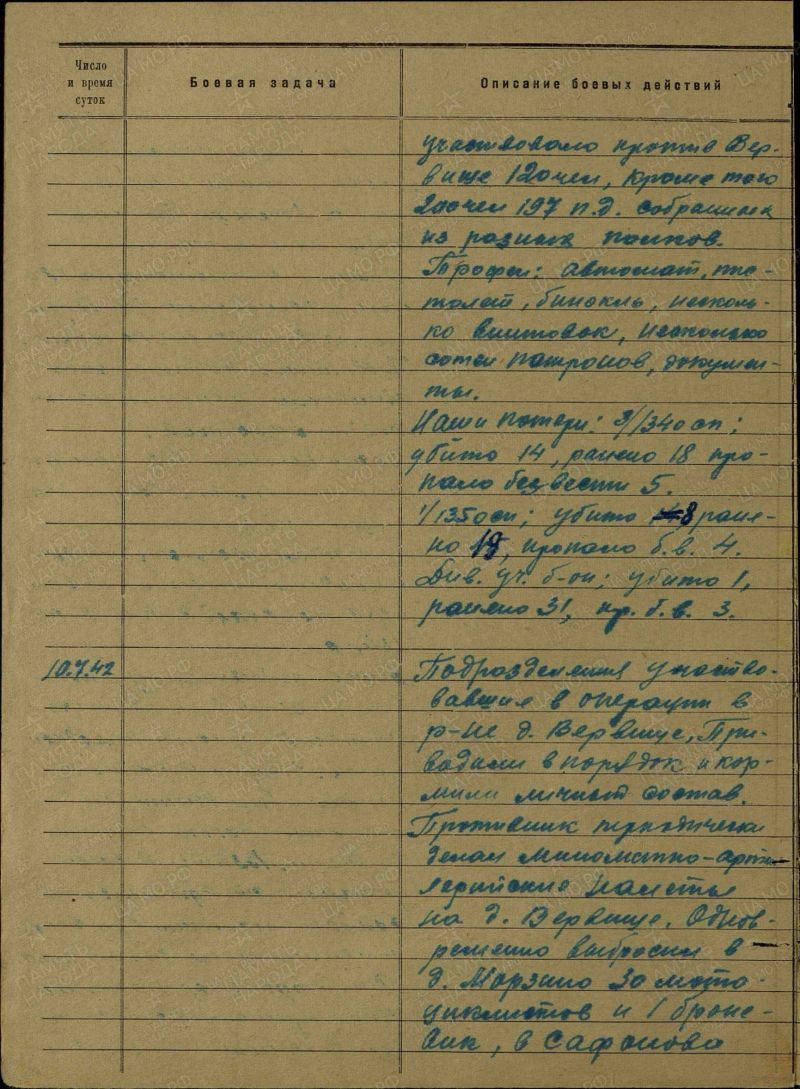 Число
и время
суток
Боевая задача
Описание боевых действий
участвовало против Вер-
вище 120 чел, кроме того
200 чел 197 п.д. собранных
из разных полков.
Трофеи: автомат, пис-
толет, бинокль, несколь-
ко винтовок, несколько
сотен патронов, докумен-
ты.
Наши потери: 3/134 осп;
убито 14, ранено 18 про-
пало без вести 5.
1/135 осп; убито 8 ране-
но 18, пропало б.в. 4.
Див. уч. б-он; убито 1,
ранено 31, пр. б.в. 3.
10.7.42
Подразделения участво-
вавшие в операции в
р-не д. Вервище, При-
водили в порядок и кор-
мили личный состав.
Противник периодически
делал минометно-арти-
лерийские налеты
на д. Вервище. Однов-
ременно выбросил в
д. Марзино 30 мото-
циклистов и 1 броне-
вик, в Сафоново